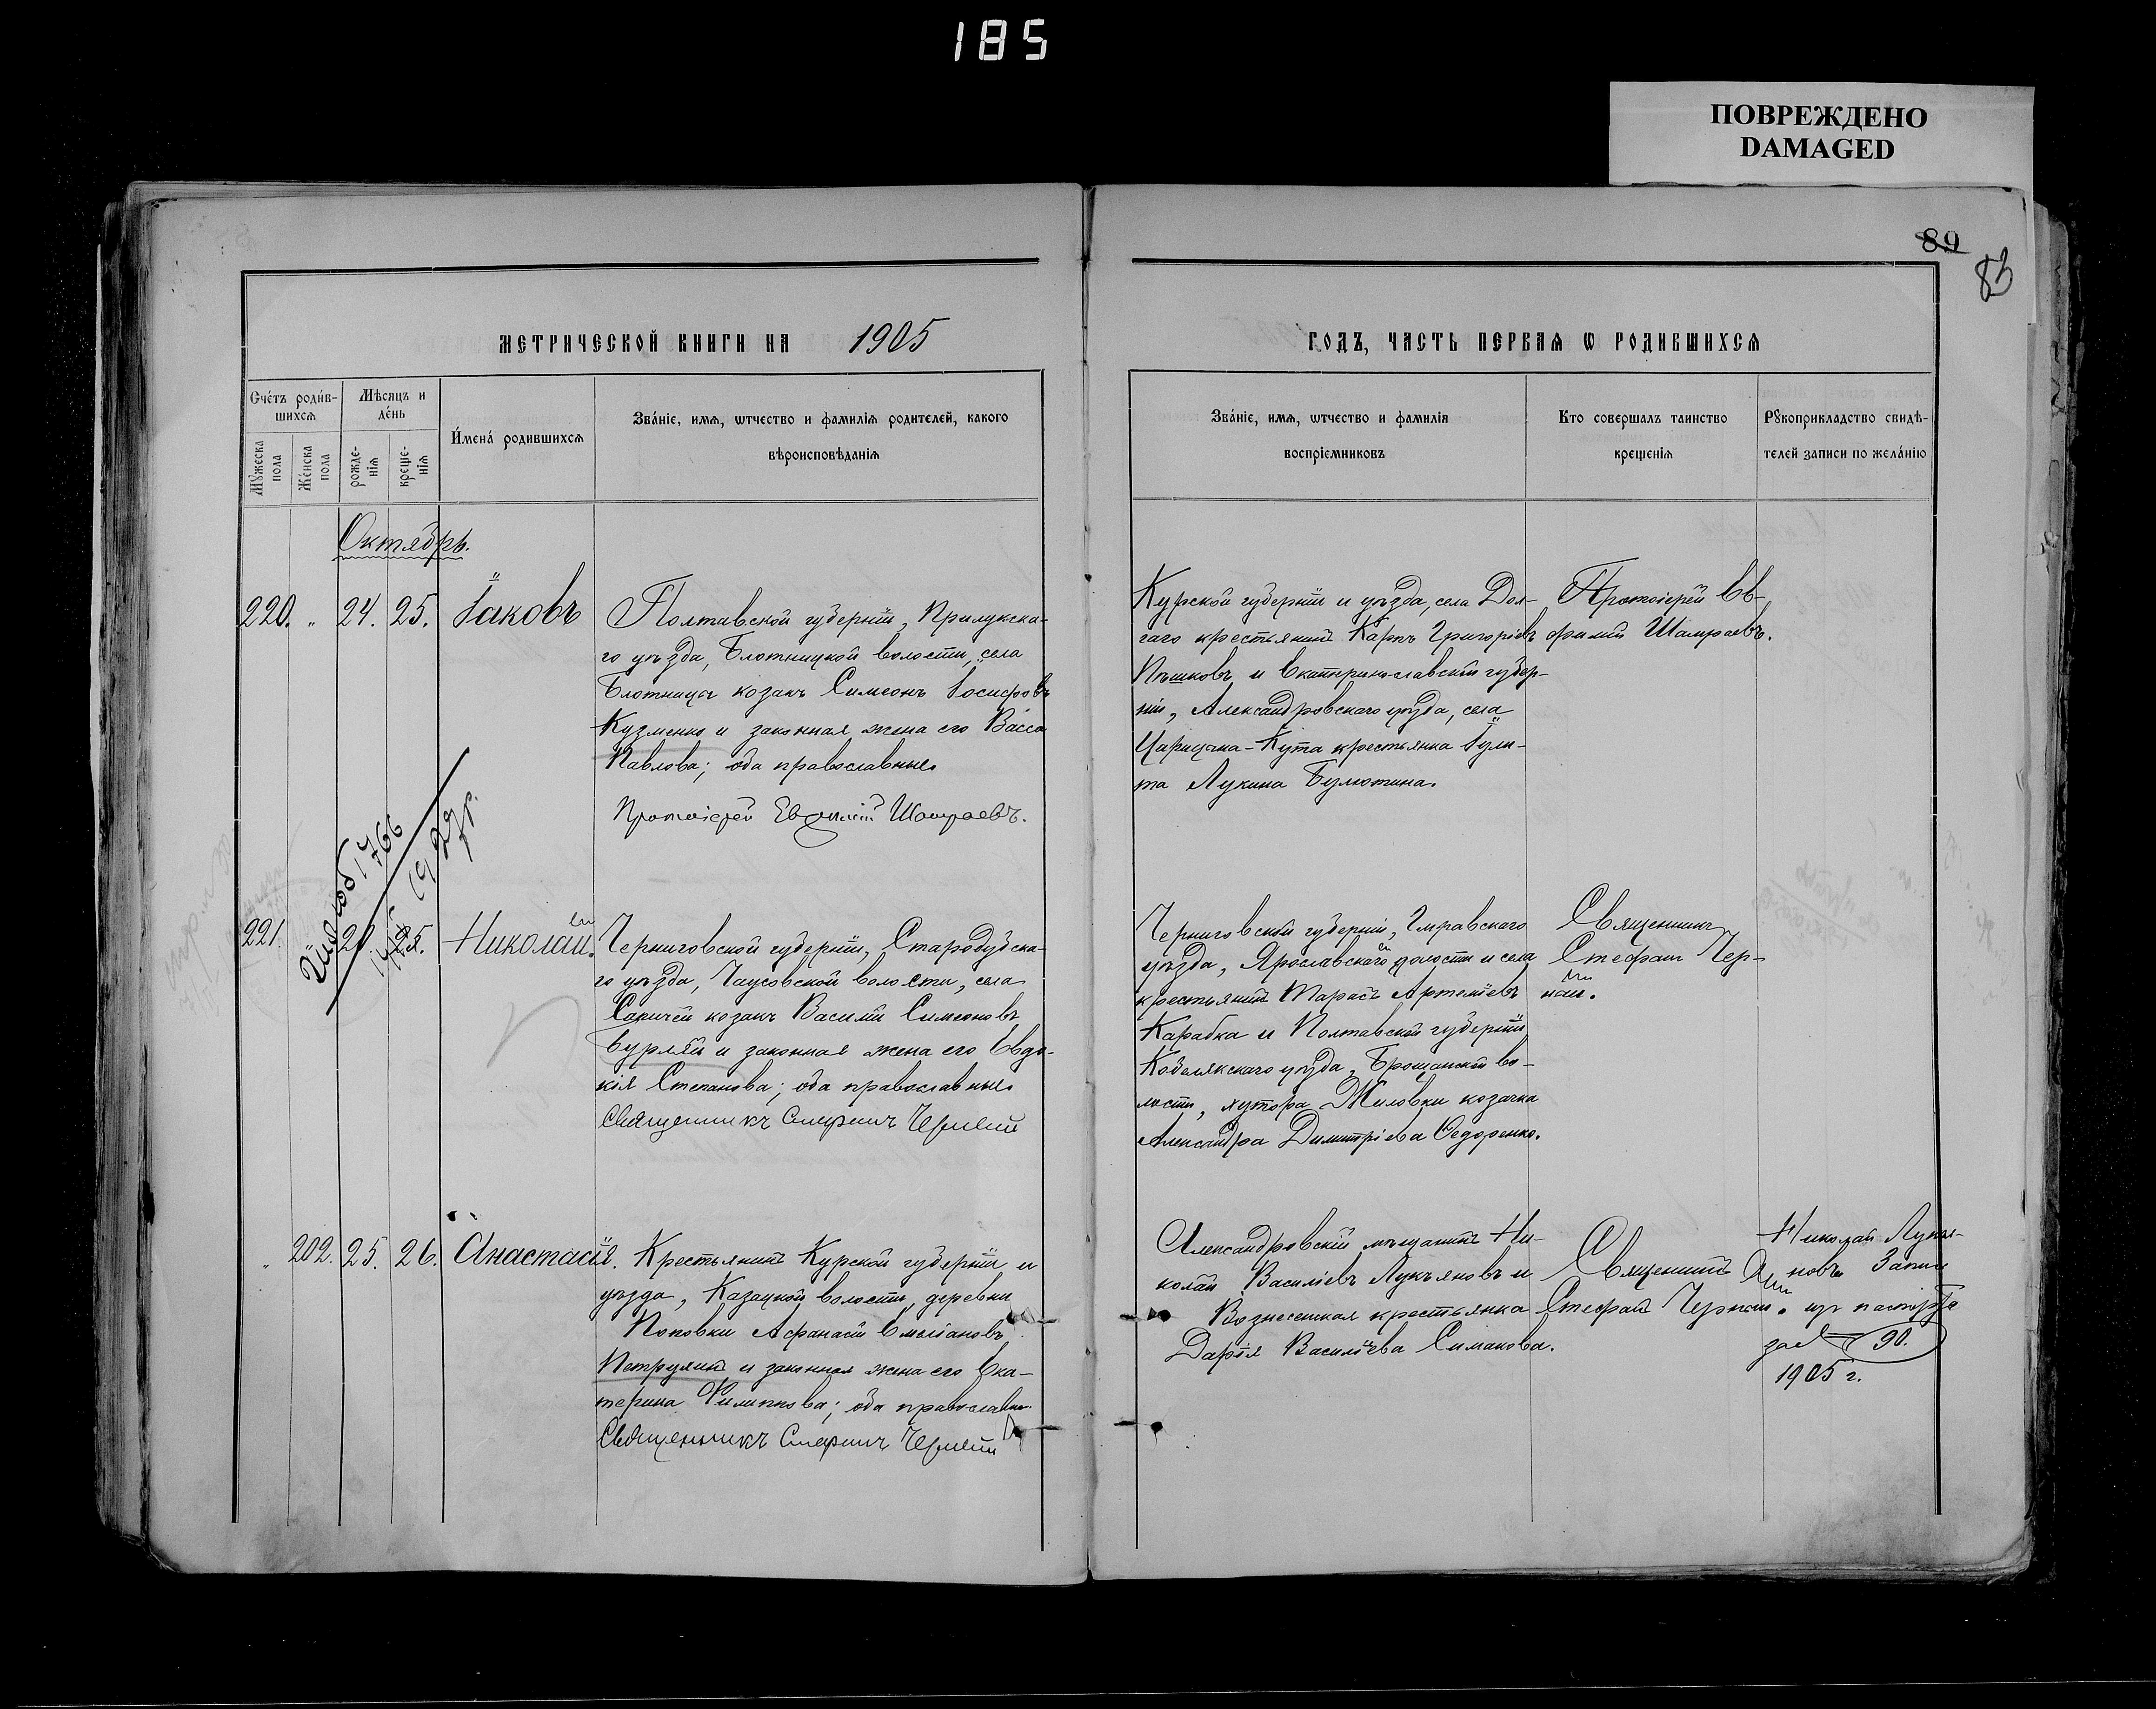 185
ПОВРЕЖДЕНО
DAMAGED
89
83
МЕТРИЧЕСКОЙ КНИГИ НА 1905
ГОДЪ, ЧАСТЬ ПЕРВАѦ Ѡ РОДИВШИХСѦ
Счётъ роди́в-
шихсѧ
Мѣсяцъ и
де́нь
Мꙋжеска пола
Же́нска пола
рожде-
нїѧ
креще-
нїѧ
И́мена́ родившихсѧ
Зва́нїе, имѧ, ѡтчество и фамилїѧ родителей, какого
вѣроисповѣданїѧ
Зва́нїе, имѧ, ѡтчество и фамилїѧ
воспрїемниковъ
Кто совершалъ таинство
крещенїѧ
Рꙋкоприкладство свидѣ-
телей записи по жела́нїю
Октябрь.
220. " 24. 25. Іаковъ
Полтавской губерніи, Прилукска-
го уѣзда, Блотницкой волости, села
Блотница козакъ Симеонъ Іосифовъ
Кузменко и законная жена его Васса
Павлова; оба православные.
Протоіерей Евфимій Шамраевъ.
Курской губерніи и уѣзда, села Дол-
гаго крестьянинъ Карпъ Григоріевъ
Пѣшковъ и Екатеринославской губер-
ніи, Александровскаго уѣзда, села
Царицына-Кута крестьянка Іули-
та Лукина Булютина.
Протоіерей Ев-
фимій Шамраевъ.
221. 25. Николай.
Черниговской губерніи, Стародубска-
го уѣзда, Чаусовской волости, села
козакъ Василій Симеоновъ
Бурлай и законная жена его Евдо-
кія Степанова; оба православные.
Священникъ Стефанъ Черный
Черниговской губерніи,
уѣзда, Ярославской волости и села
крестьянинъ Тарасъ Артеміевъ
Карабка и Полтавской губерніи,
Кобелякскаго уѣзда, во-
лости, хутора Жиловки козачка
Александра Димитріева Ѳедоренко.
Священникъ
Стефанъ Чер-
ный.
" 202. 25. 26. Анастасія.
Крестьянинъ Курской губерніи и
уѣзда, Казацкой волости, деревни
Поповки Афанасій Емеліановъ
Петрулинъ и законная жена его Ека-
терина Филиппова; оба православн.
Священникъ Стефанъ Черный
Александровскій мѣщанинъ Ни-
колай Василіевъ Лукьяновъ и
Вознесенская крестьянка
Дарія Василіева Симакова.
Священникъ
Стефанъ Черный.
Николай Лукья-
новъ
90.
1905 г.